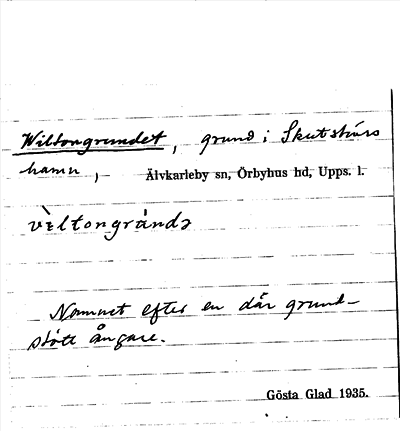 Wiltongrundet, grund i Skutskärs
hamn, Älvkarleby sn, Örbyhus hd, Upps. l.
Namnet efter en där grund-
stött ångare.
Gösta Glad 1935.